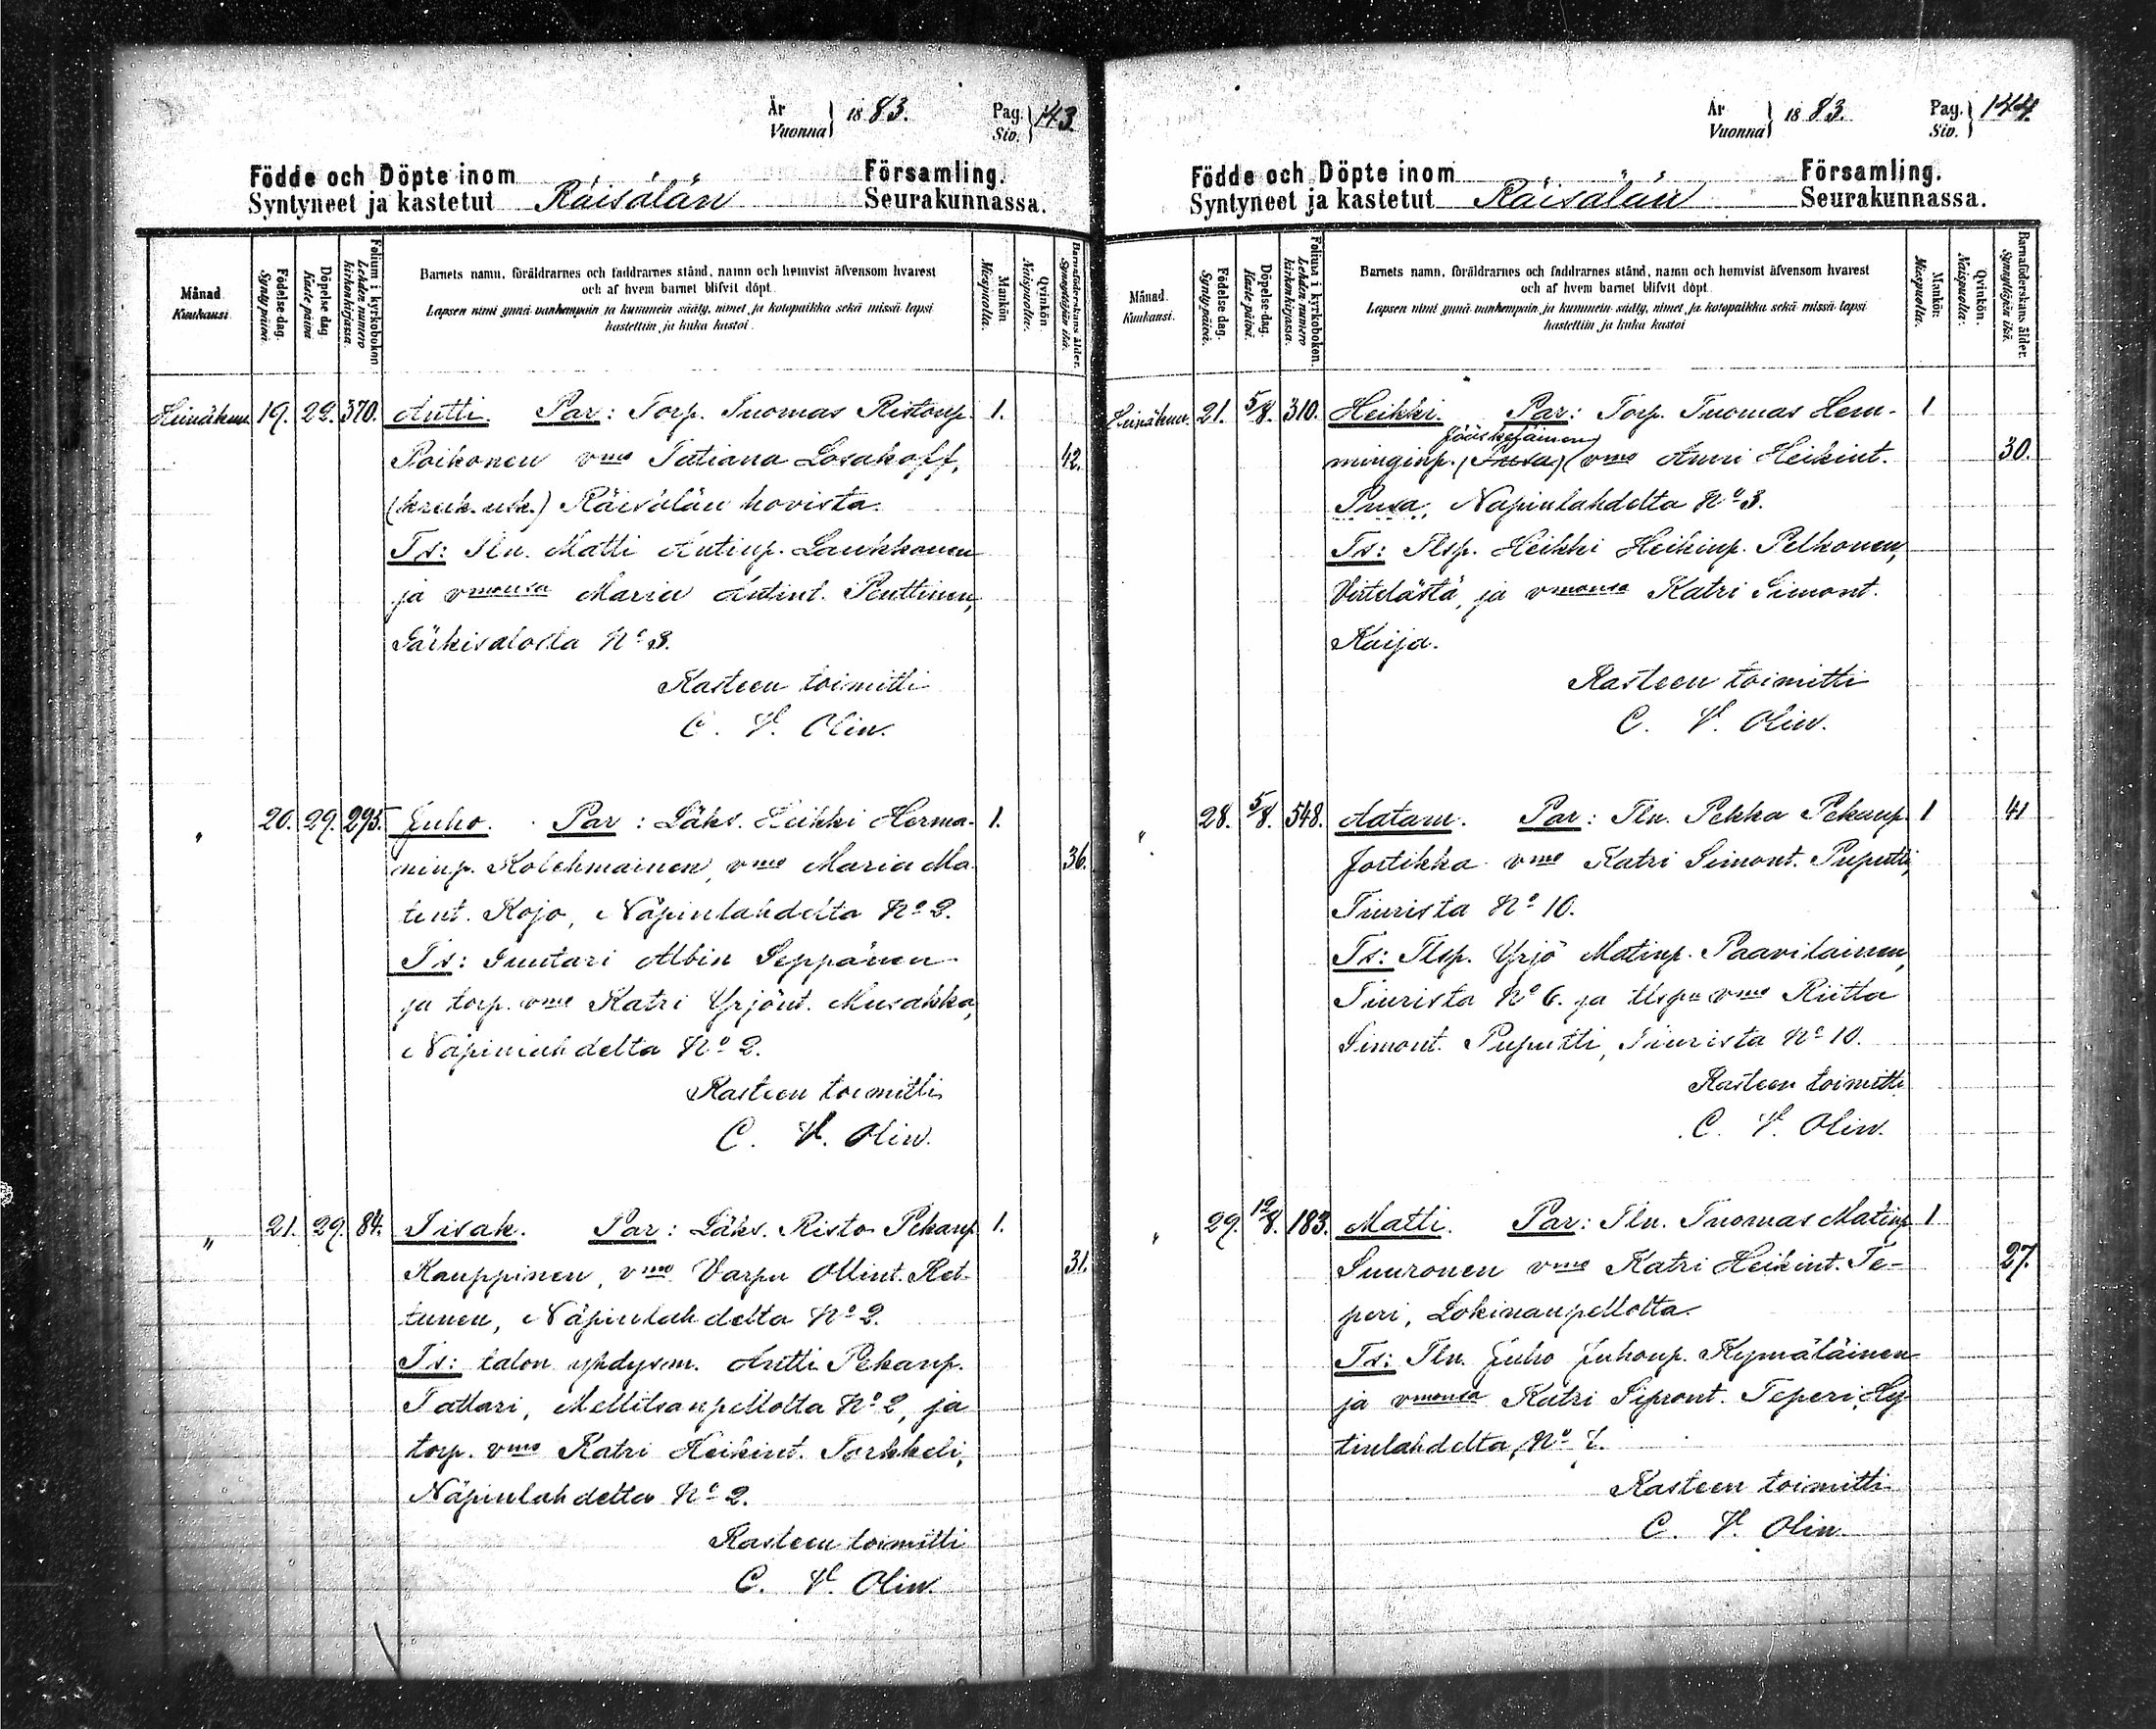 År Vuonna } 1883. Pag. Siv. } 143
Födde och Döpte inom Församling.
Syntyneet ja kastetut Räisälän Seurakunnassa.
Månad. Kuukausi.
Födelse-dag. Syntypäivä.
Döpelse-dag. Kaste-päivä
Folium i kyrkoboken. Lehden numero kirkonkirjassa.
Barnets namn, föräldrarnes och faddrarnes stånd, namn och hemvist äfvensom hvarest
och af hvem barnet blifvit döpt.
Lapsen nimi ynnä vanhempain ja kummein sääty, nimet ja kotopaikka sekä missä lapsi
kastettiin ja kuka kastoi.
Mankön. Miespuolia.
Qvinkön. Naispuolia.
Barnaföderskans ålder. Synnyttäjän ikä.
Heinäkuu 19. 29. 370. Antti. Par: Torp. Tuomas Ristonp. 1.
Poikonen vmo Tatiana Losakoff, 42.
(kreik. usk.) Räisälän hovista.
Ts: Tln. Matti Antinp. Laukkanen
ja vmonsa Maria Antint. Penttinen,
Särkisalosta No 3.
Kasteen toimitti
C. V. Olin.
" 20. 29. 295. Juho. Par: Läks. Heikki Herma- 1.
ninp. Kolehmainen, vmo Maria Ma- 36.
tint. Kojo, Näpinlahdelta No 2.
Ts: Suutari Albin Seppänen
ja torp. vmo Katri Yrjönt. Musakka,
Näpinlahdelta No 2.
Kasteen toimitti
C. V. Olin.
" 21. 29. 84. Iisak. Par: Läks. Risto Pekanp. 1.
Kauppinen, vmo Varpu Ollint. Ret- 31.
tunen, Näpinlahdelta No 2.
Ts: talon yhdysm. Antti Pekanp.
Tattari, Mellitsanpellolta No 2, ja
torp. vmo Katri Heikint. Torkkeli,
Näpinlahdelta No 2.
Kasteen toimitti
C. V. Olin.
År Vuonna } 1883. Pag. Siv. } 144.
Födde och Döpte inom Församling.
Syntyneet ja kastetut Räisälän Seurakunnassa.
Månad. Kuukausi.
Födelse-dag. Syntypäivä.
Döpelse-dag. Kaste-päivä.
Folium i kyrkoboken. Lehden numero kirkonkirjassa.
Barnets namn, föräldrarnes och faddrarnes stånd, namn och hemvist äfvensom hvarest
och af hvem barnet blifvit döpt.
Lapsen nimi ynnä vanhempain ja kummein sääty, nimet ja kotopaikka sekä missä lapsi
kastettiin ja kuka kastoi
Mankön. Miespuolia.
Qvinkön. Naispuolia.
Barnaföderskans ålder. Synnyttäjän ikä.
Heinäkuu. 21. 5/8. 310. Heikki. Par: Torp. Tuomas Hem- 1
Jääskeläinen
minginp. (Pusa) vmo Anni Heikint. 30.
Pusa, Näpinlahdelta No 3.
Ts: Tlsp. Heikki Heikinp. Pelkonen,
Virtelästä, ja vmonsa Katri Simont.
Kaija.
Kasteen toimitti
C. V. Olin.
" 28. 5/8. 548. Aatam. Par: Tln. Pekka Pekanp. 1 41
Jortikka vmo Katri Simont. Puputti,
Tiurista No 10.
Ts: Tlsp. Yrjö Matinp. Paavilainen,
Tiurista No 6. ja tlspn vmo Riitta
Simont. Puputti, Tiurista No 10.
Kasteen toimitti
C. V. Olin.
" 29. 12/8. 183. Matti. Par: Tln. Tuomas Matinp 1
Suuronen vmo Katri Heikint. Te- 27.
peri, Lokinanpellolta.
Ts: Tln. Juho Juhonp. Kymäläinen
ja vmonsa Katri Sipront. Teperi, Hy-
tinlahdelta, No
Kasteen toimitti
C. V. Olin